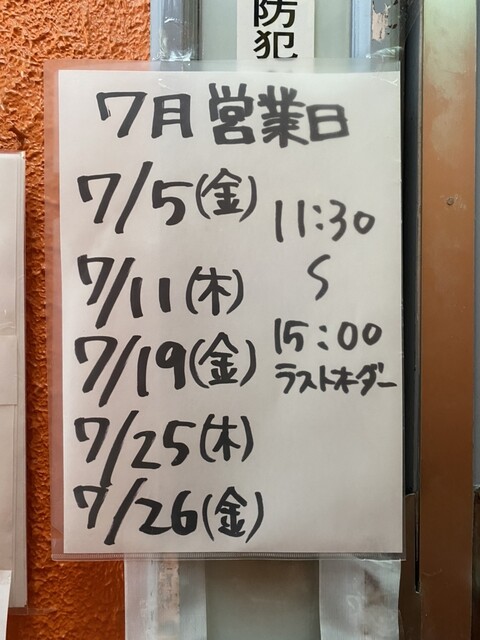 防犯
7月 営業日
7/5(金)
7/11(木)
7/19(金)
7/25(木)
7/26(金)
11:30
〜
15:00
ラストオーダー